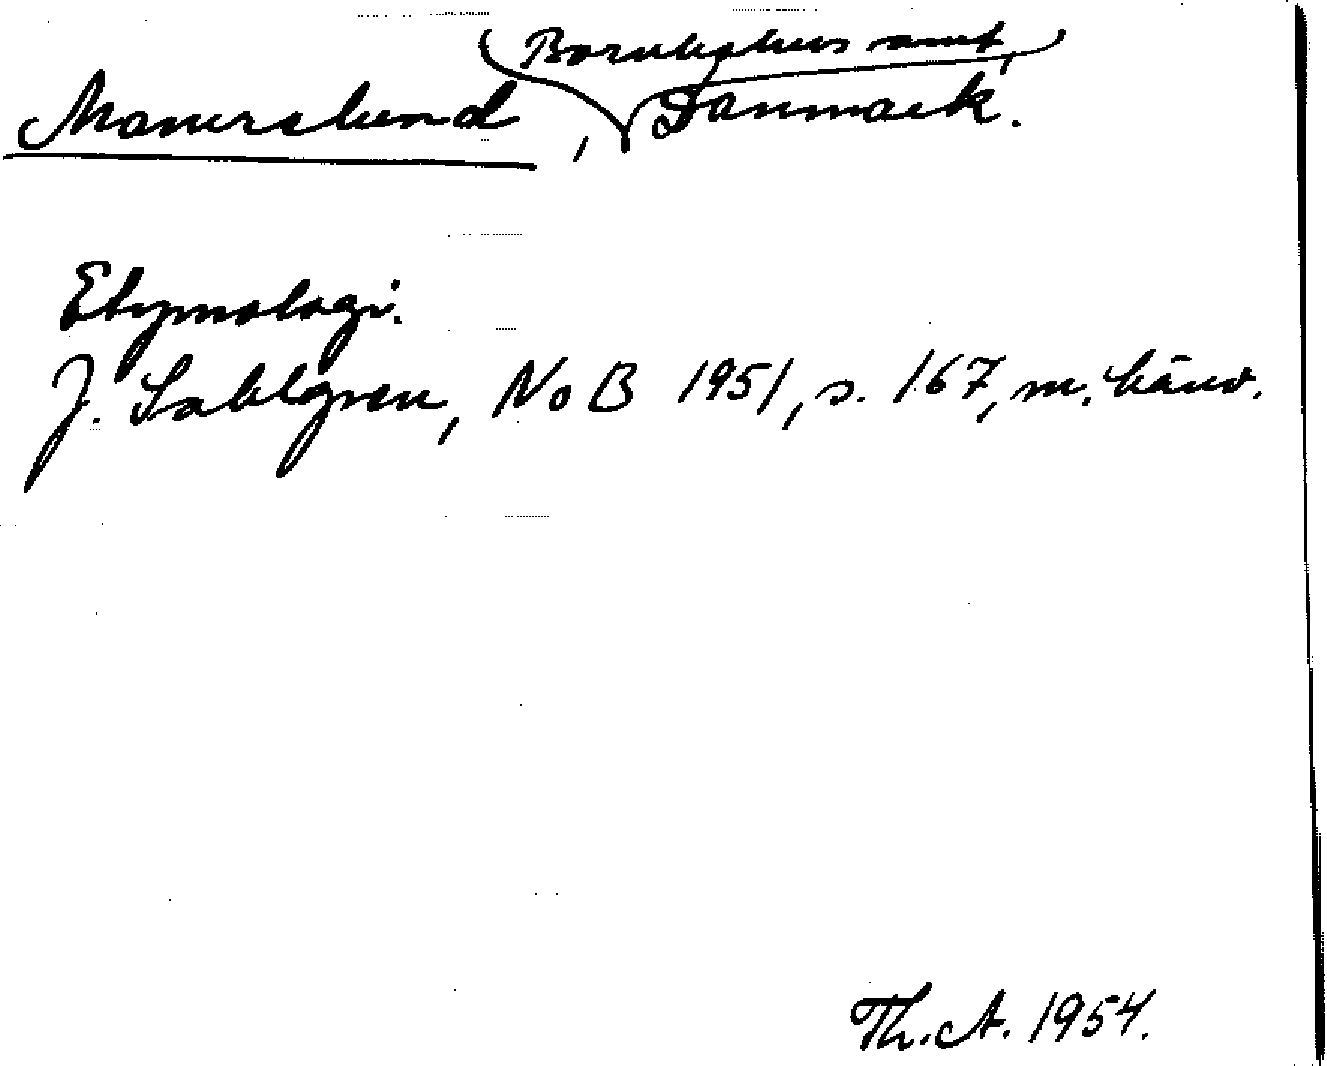 Manerslund, Danmark.
Etymologi.
J. Sahlgren, NoB 1951, s. 167, m. hänv.
Th. A. 1954.